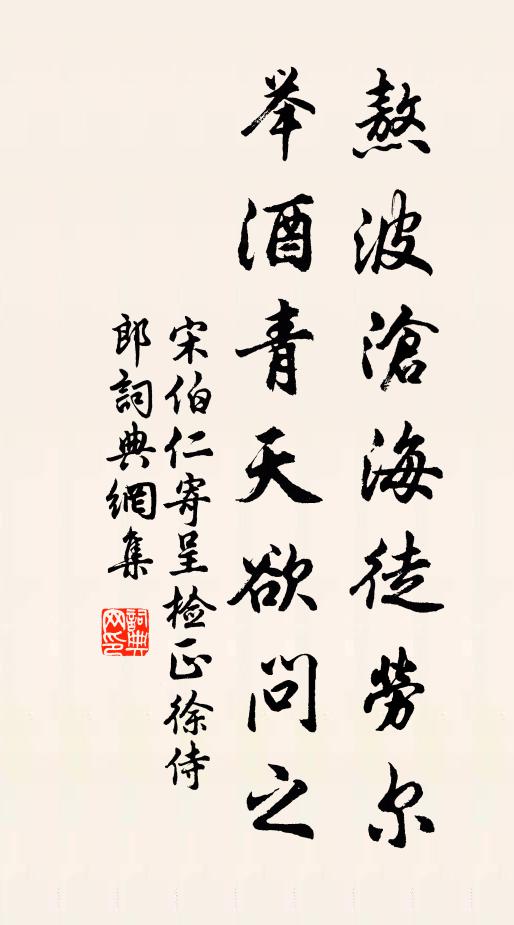 熬波滄海徒勞尔
举酒青天欲問之
宋伯仁寄呈检正徐侍
郎詞典網集
詞典
网印